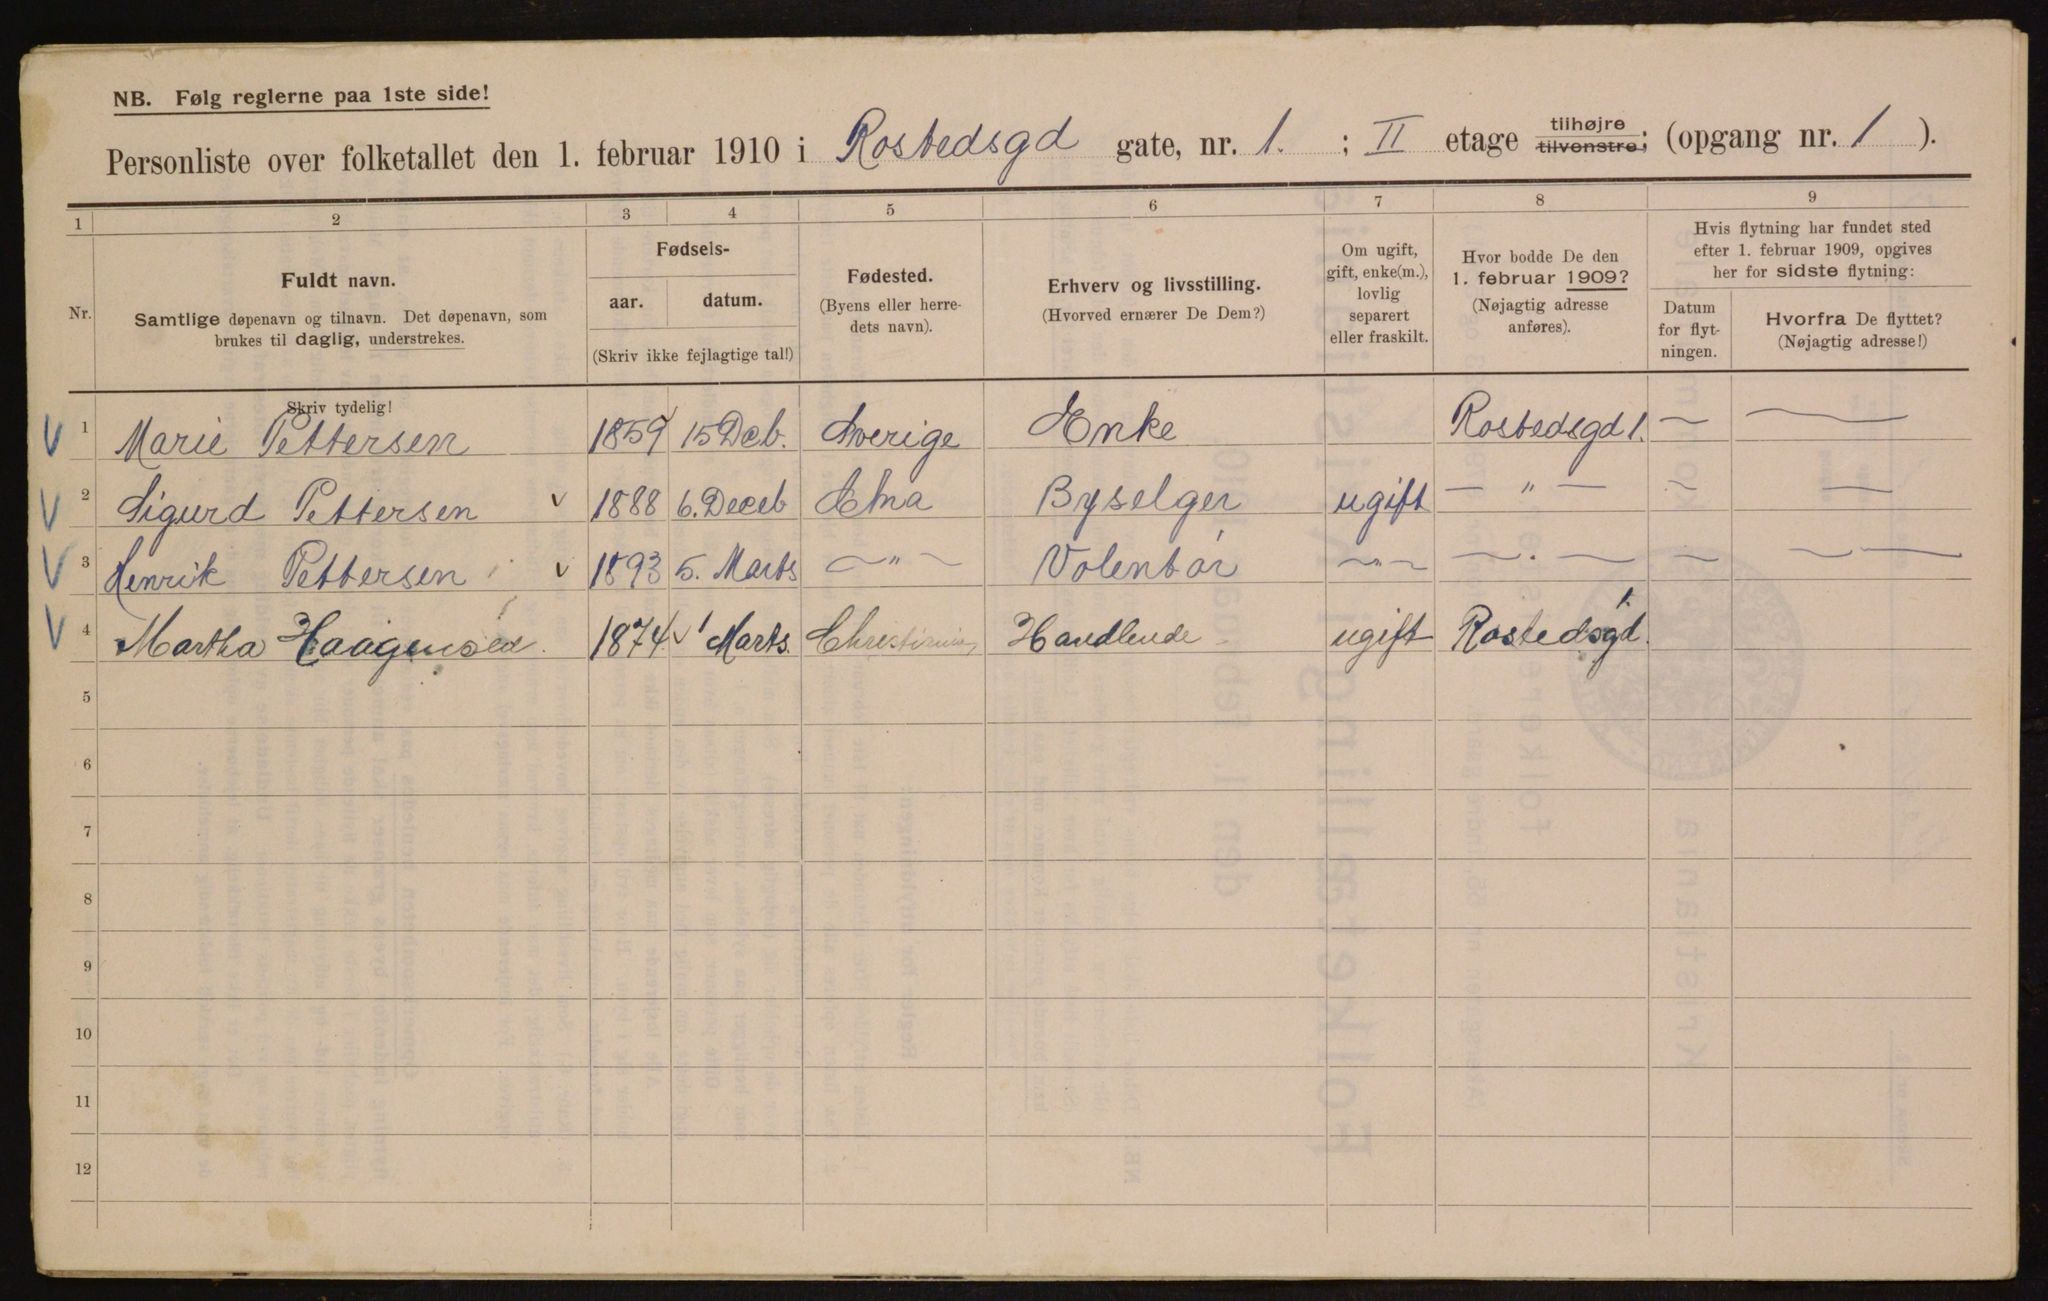 NB. Følg reglerne paa 1ste side!
Personliste over folketallet den 1. februar 1910 i Rostedsgd gate, nr. 1. ; II etage tilhøjre tilvenstre; (opgang nr. 1 ).
1 2 3 4 5 6 7 8 9
Nr.
Fuldt navn.
Samtlige døpenavn og tilnavn. Det døpenavn, som
brukes til daglig, understrekes.
Fødsels-
aar. datum.
(Skriv ikke fejlagtige tal!)
Fødested.
(Byens eller herre-
dets navn).
Erhverv og livsstilling.
(Hvorved ernærer De Dem?)
Om ugift,
gift, enke(m.),
lovlig
separert
eller fraskilt.
Hvor bodde De den
1. februar 1909?
(Nøjagtig adresse
anføres).
Hvis flytning har fundet sted
efter 1. februar 1909, opgives
her for sidste flytning:
Datum
for flyt-
ningen.
Hvorfra De flyttet?
(Nøjagtig adresse!)
Skriv tydelig!
V 1 Marie Pettersen 1859 15 Deb. Sverige Enke Rostedsgd 1. — —
V 2 Sigurd Pettersen v 1888 6. Deceb Byselger ugift — " — — —
V 3 Henrik Pettersen v 1893 5. Marts — " — Volentør — " — — . — — — —
V 4 Martha Haagensen. 1874 v 1 Marts. Christiania Handlende ugift Rostedsgd. 1.
5
6
7
8
9
10
11
12